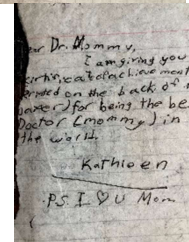 ear Dr. Mommy,
I am giving you
certificat of achievement
printed on the back of
paper) for being the be
Doctor (mommy) in
the world.
Kathleen
P.S I ♡ U Mom